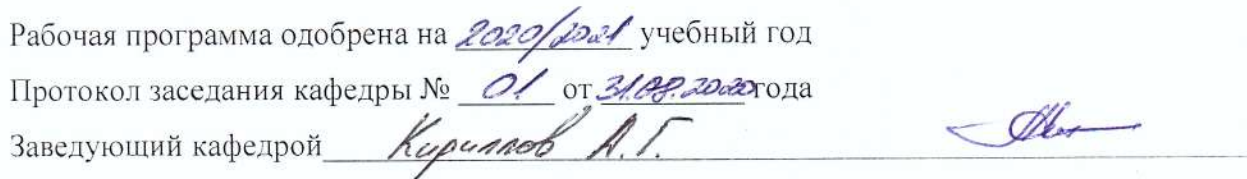 Рабочая программа одобрена на 2020/2021 учебный год
Протокол заседания кафедры № 01. от 31.08.2020 года
Заведующий кафедрой Кириллов А.Г.